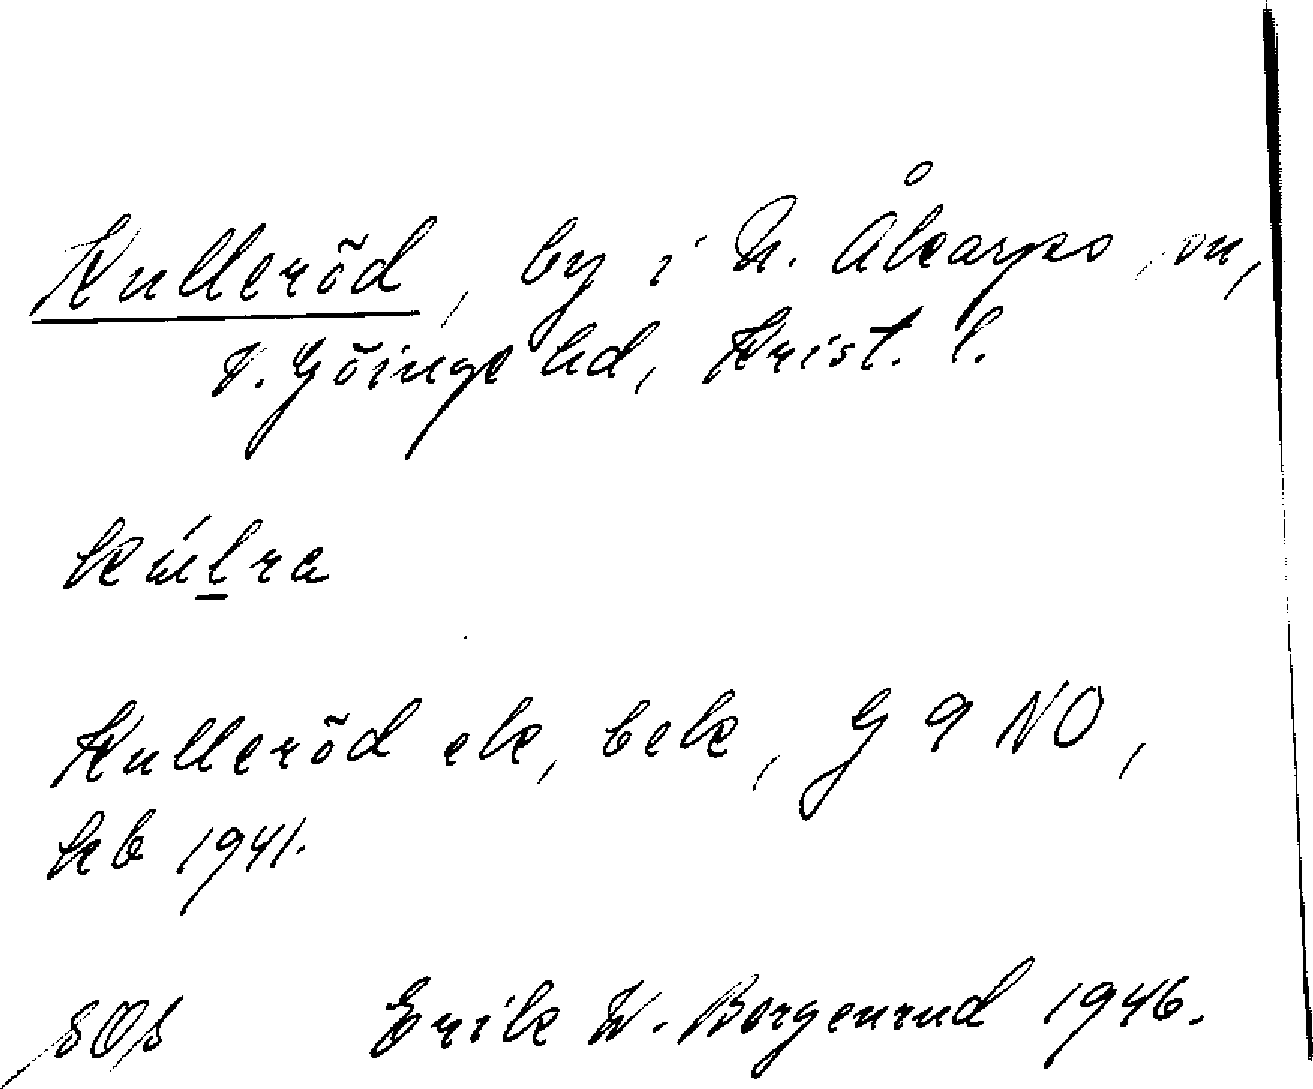 Kulleröd, by i N. Åkarps sn,
V. Göinge hd, Krist. l.
kúl̲ra
Kulleröd ek, bek, G 9 NO,
hb 1941.
SOS Erik W. Borgenrud 1946.